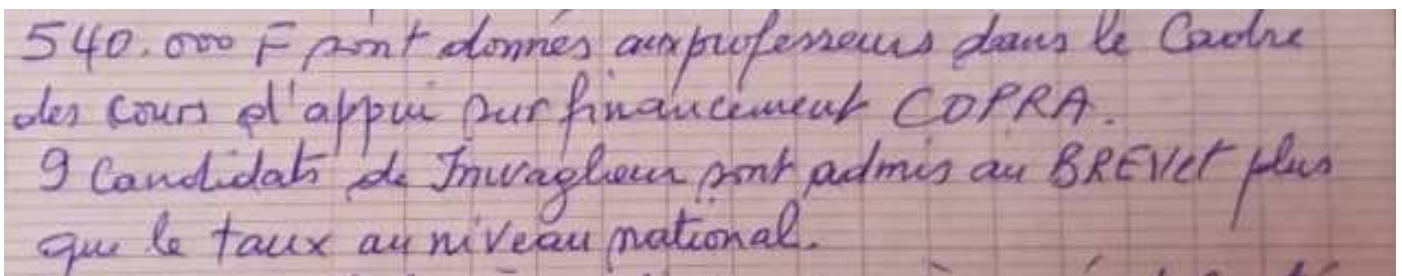 540.000 F sont donnés aux professeurs dans le Cadre
des cours d'appui sur financement COPRA.
9 Candidats de sont admis au BREVet plus
que le taux au niveau national.